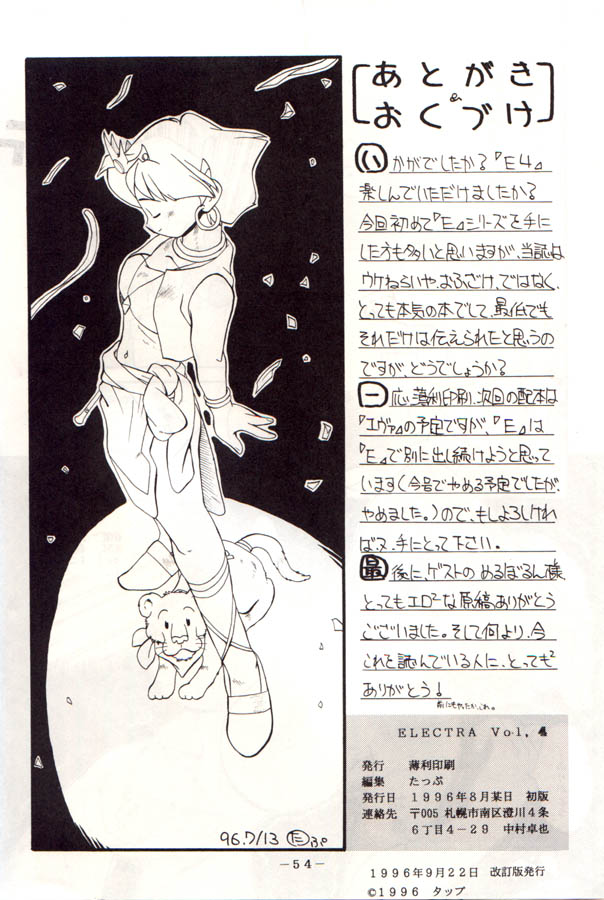 あとがき
&
おくづけ
いかがでしたか？『E4』
楽しんでいただけましたか？
今回初めて『E』シリーズを手に
した方も多いと思いますが、当誌は
ウケねらいや、おふざけ、ではなく、
とっても本気の本でして、最低でも
それだけは伝えられたと思うの
ですが、どうでしょうか？
一応、薄利印刷、次回の配本は
『エヴァ』の予定ですが、『E』は
『E』で別に出し続けようと思って
います(今号でやめる予定でしたが、
やめました。)ので、もしよろしけれ
ば又、手にとって下さい。
最後に、ゲストの めるぼるん様、
とってもエロ²な原稿、ありがとう
ございました。そして何より、今
これを読んでいる人に、とっても²
ありがとう！
前にもやったか、これ。
ELECTRA Vol.4
発行 薄利印刷
編集 たっぷ
発行日 1996年8月某日 初版
連絡先 〒005 札幌市南区澄川4条
6丁目4－29 中村卓也
96.7/13 たっぷ
－54－
1996年9月22日 改訂版発行
©1996 タップ